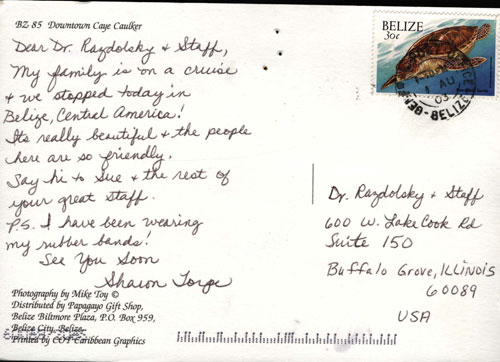 BZ 85 Downtown Caye Caulker
Dear Dr. Razdolsky & Staff,
My family is on a cruise
& we stopped today in
Belize, Central America!
Its really beautiful & the people
here are so friendly.
Say hi to Sue & the rest of
your great staff.
P.S. I have been wearing
my rubber bands!
See You Soon
Sharon
Photography by Mike Toy ©
Distributed by Papagayo Gift Shop,
Belize Biltmore Plaza, P.O. Box 959,
Belize City, Belize.
Printed by COT Caribbean Graphics
BELIZE
30c
AU
03
BELIZE
Dr. Razdolsky & Staff
600 W. Lake Cook Rd
Suite 150
Buffalo Grove, ILLINOIS
60089
USA